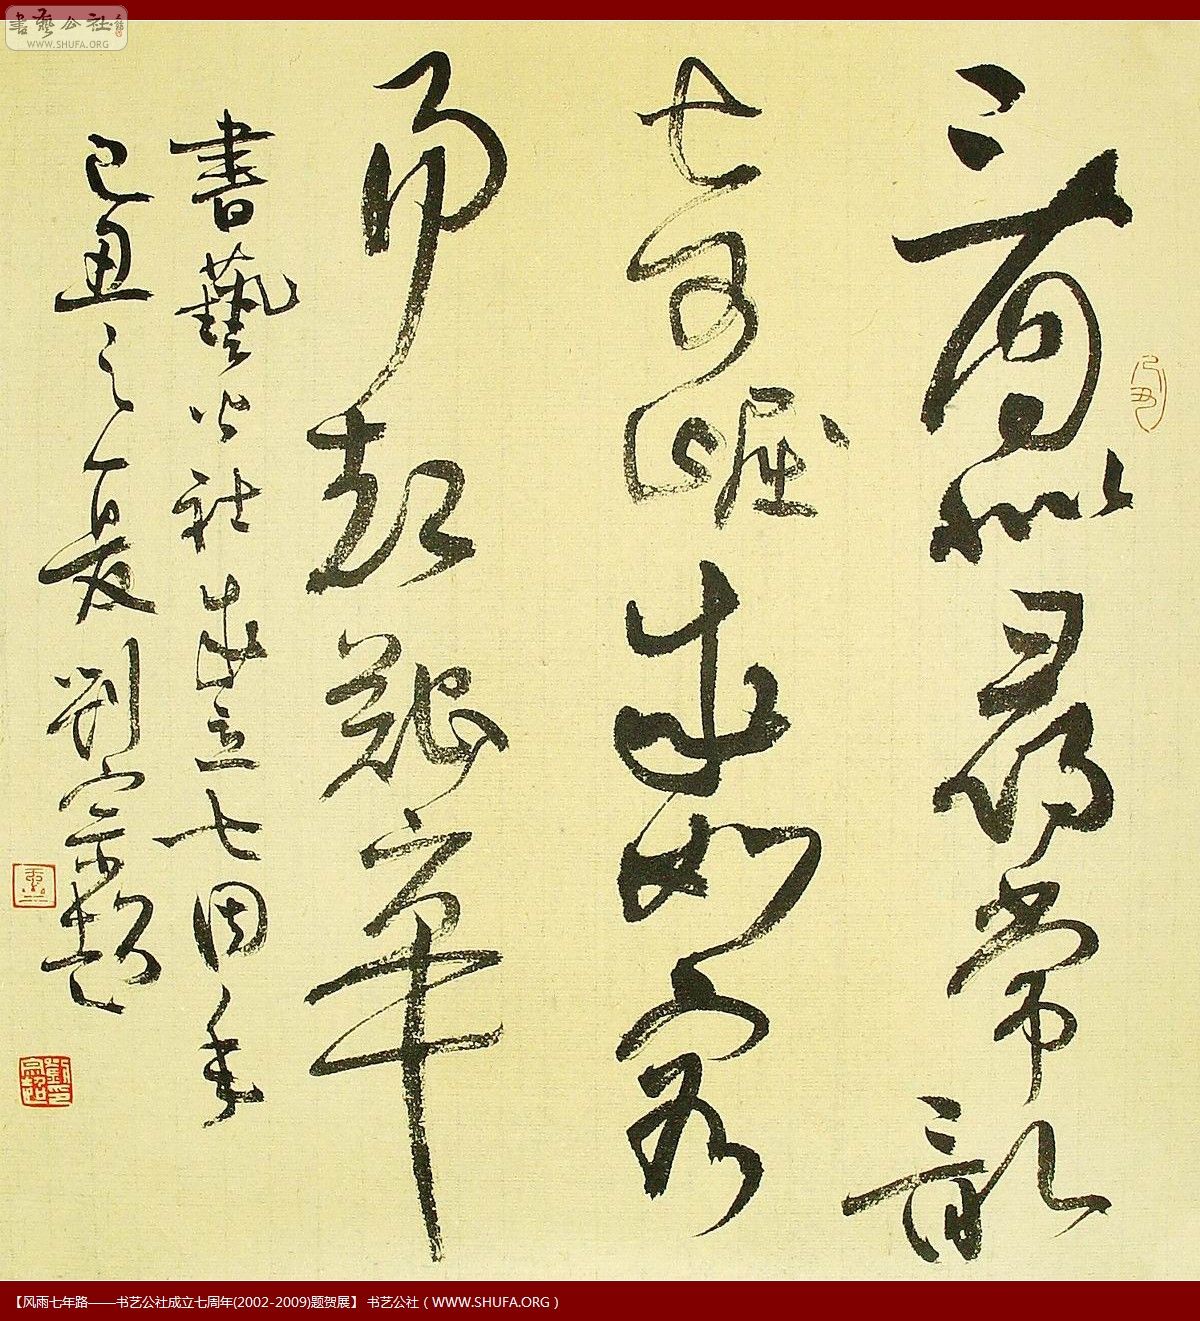 書藝公社
WWW.SHUFA.ORG
看似尋常最
奇崛成如容
易却艱辛
書藝公社成立七周年
己丑之夏劉宗超
【风雨七年路——书艺公社成立七周年(2002-2009)题贺展】 书艺公社 ( WWW.SHUFA.ORG )